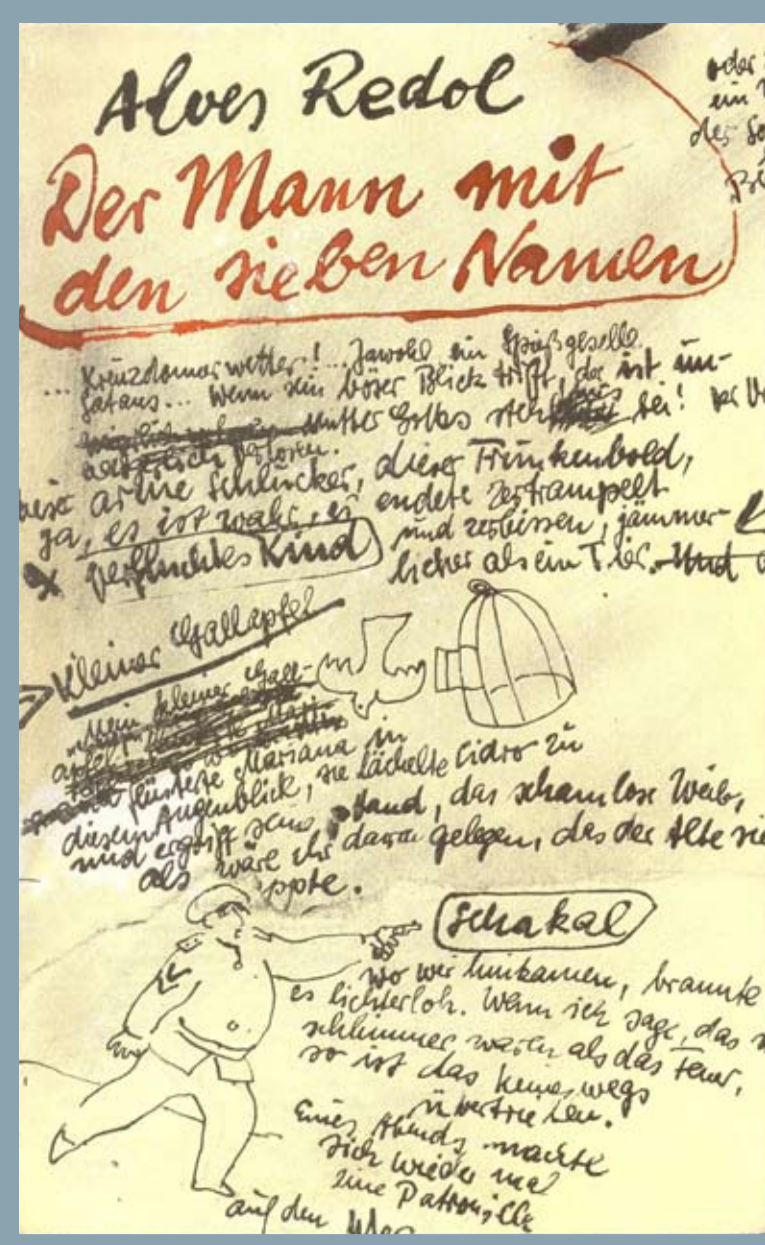 Alves Redol
Der Mann mit
den sieben Namen
oder
ein
der
... Kreuzdonnerwetter! ... Jawohl ein Spießgeselle
Satans... Wenn sein böser Blick trifft, der ist un-
Mutter Gottes steh bei! der
verloren.
arme Schlucker, dieser Trunkenbold,
ja, es ist wahr, er endete zertrampelt
und zerbissen, jämmer-
licher als ein Tier. Und
verfluchtes Kind
Kleiner Gallapfel
"Mein kleiner Gall-
apfel
flüsterte Mariana in
diesem Augenblick, sie lächelte Cidro zu
und ergriff seine Hand, das schamlose Weib,
als wäre ihr daran gelegen, das der Alte sie
ppte.
Schakal
Wo wir hinkamen, brannte
es lichterloh. Wenn ich sage, das
schlimmer waren als das Feuer,
so ist das keineswegs
übertrieben.
Eines Abends machte
sich wieder mal
eine Patrouille
auf den Weg